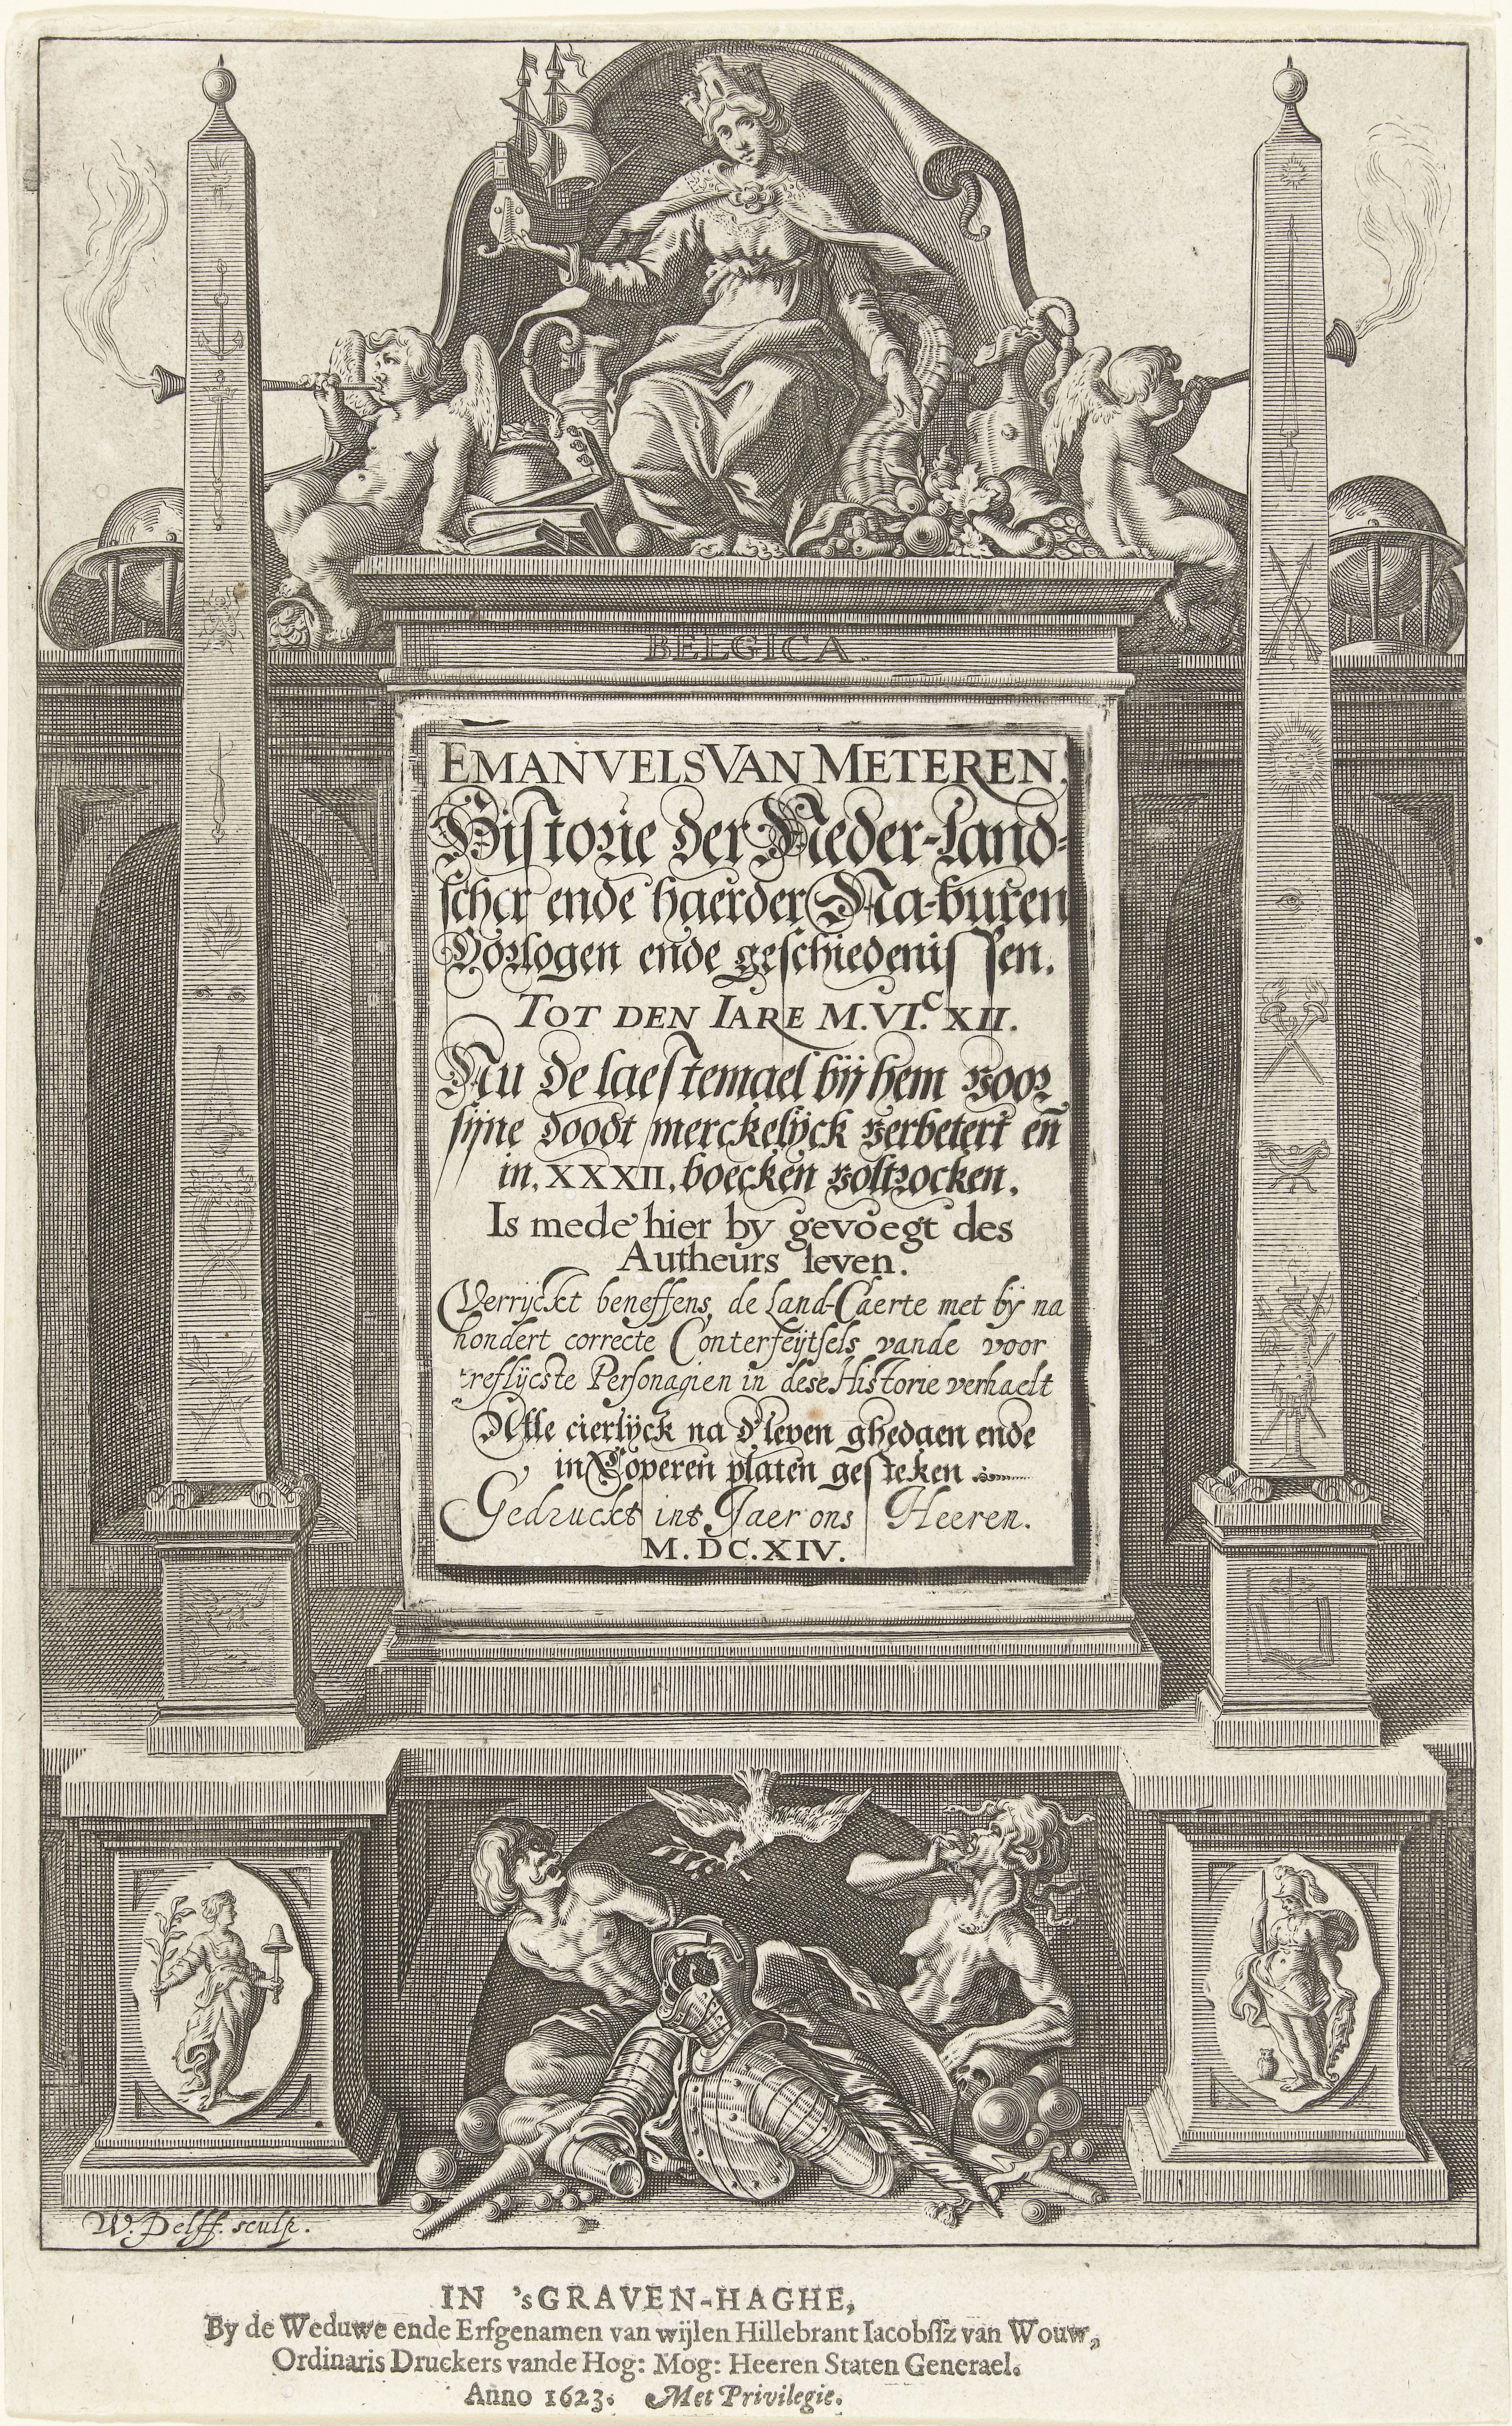 BELGICA.
EMANVELS VAN METEREN.
Historie der Neder-land-
scher ende haerder Na-buren
Oorlogen ende geschiedenissen.
TOT DEN IARE M.VI.C XII.
Nu de laestemael bij hem voor
sijne doodt merckelijck verbetert eñ
in. XXXII. boecken voltrocken.
Is mede hier by gevoegt des
Autheurs leven.
Verryckt beneffens de Land-Caerte met bij na
hondert correcte Conterfeijtsels vande voor
treflijcste Personagien in dese Historie verhaelt
Alle cierlijck na d'leven ghedaen ende
in Coperen platen gesteken
Gedruckt int Jaer ons Heeren.
M.DC.XIV.
W. Delff. sculp.
IN 'sGRAVEN-HAGHE,
By de Weduwe ende Erfgenamen van wijlen Hillebrant Iacobssz van Wouw,
Ordinaris Druckers vande Hog: Mog: Heeren Staten Generael.
Anno 1623. Met Privilegie.